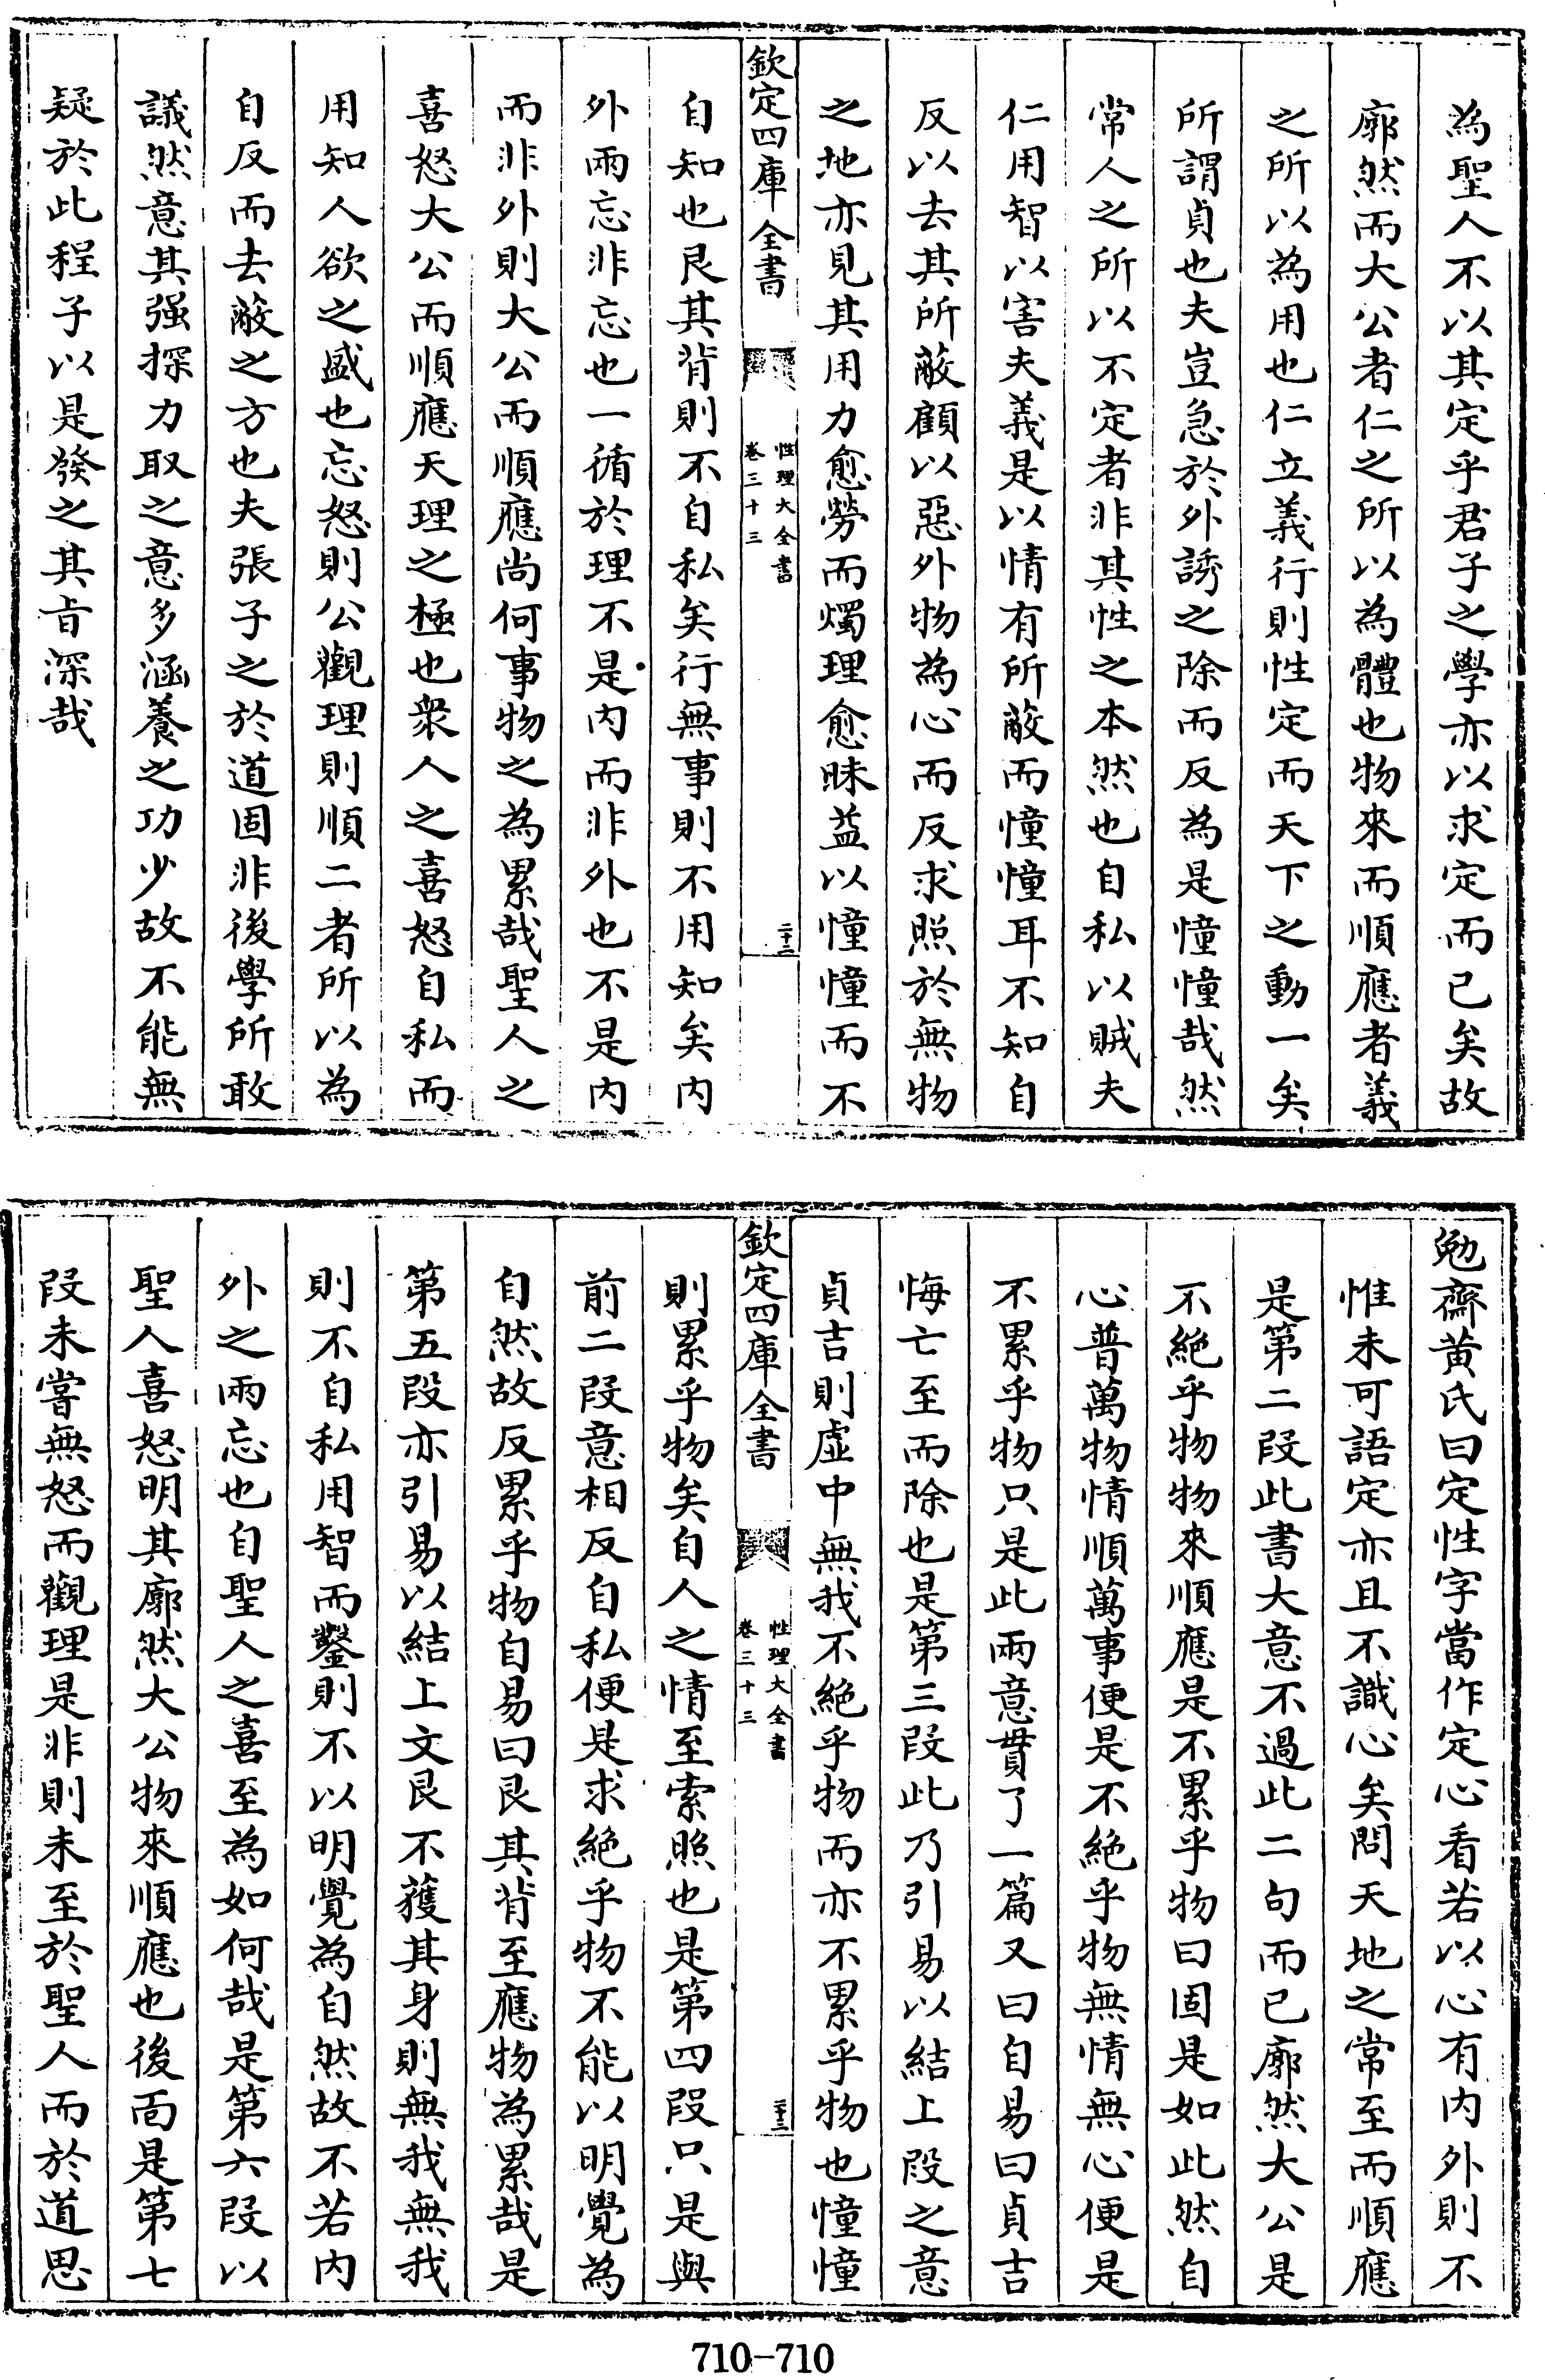 為聖人不以其定乎君子之學亦以求定而已矣故
廓然而大公者仁之所以為體也物來而順應者義
之所以為用也仁立義行則性定而天下之動一矣
所謂貞也夫豈急於外誘之除而反為是憧憧哉然
常人之所以不定者非其性之本然也自私以賊夫
仁用智以害夫義是以情有所蔽而憧憧耳不知自
反以去其所蔽顧以惡外物為心而反求照於無物
之地亦見其用力愈勞而燭理愈昧益以憧憧而不
欽定四庫全書
性理大全書
卷三十三
二十二
自知也艮其背則不自私矣行無事則不用知矣内
外兩忘非忘也一循於理不是内而非外也不是内
而非外則大公而順應尚何事物之為累哉聖人之
喜怒大公而順應天理之極也衆人之喜怒自私而
用知人欲之盛也忘怒則公觀理則順二者所以為
自反而去蔽之方也夫張子之於道固非後學所敢
議然意其强探力取之意多涵養之功少故不能無
疑於此程子以是發之其旨深哉
勉齋黄氏曰定性字當作定心看若以心有内外則不
惟未可語定亦且不識心矣問天地之常至而順應
是第二段此書大意不過此二句而已廓然大公是
不絶乎物物來順應是不累乎物曰固是如此然自
心普萬物情順萬事便是不絶乎物無情無心便是
不累乎物只是此兩意貫了一篇又曰自易曰貞吉
悔亡至而除也是第三段此乃引易以結上段之意
貞吉則虛中無我不絶乎物而亦不累乎物也憧憧
欽定四庫全書
性理大全書
卷三十三
二十三
則累乎物矣自人之情至索照也是第四段只是與
前二段意相反自私便是求絶乎物不能以明覺為
自然故反累乎物自易曰艮其背至應物為累哉是
第五段亦引易以結上文艮不獲其身則無我無我
則不自私用智而鑿則不以明覺為自然故不若内
外之兩忘也自聖人之喜至為如何哉是第六段以
聖人喜怒明其廓然大公物來順應也後面是第七
段未嘗無怒而觀理是非則未至於聖人而於道思
710-710